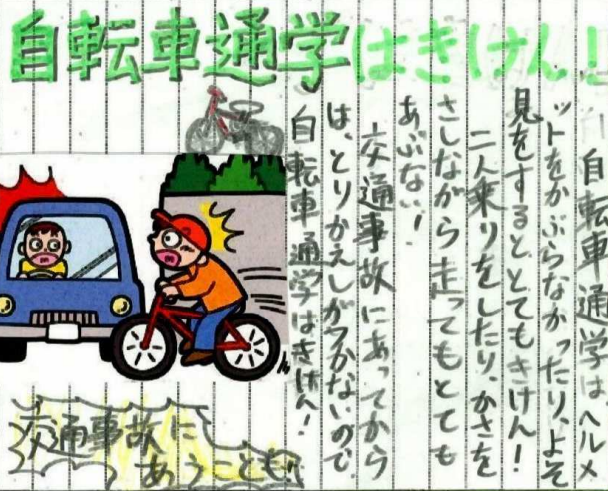 自転車通学はきけん!
自転車通学は、ヘルメ
ットをかぶらなかったり、よそ
見をするととてもきけん!
二人乗りをしたり、かさを
さしながら走ってもとても
あぶない!
交通事故にあってから
は、とりかえしがつかないので
自転車通学はきけん!
交通事故に
あうことも!!